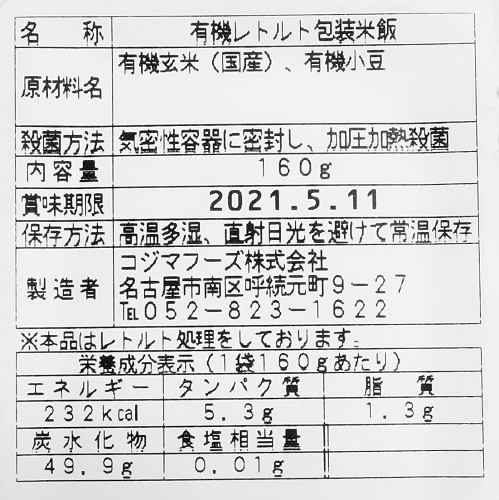 名称 有機レトルト包装米飯
原材料名 有機玄米（国産）、有機小豆
殺菌方法 気密性容器に密封し、加圧加熱殺菌
内容量 160g
賞味期限 2021.5.11
保存方法 高温多湿、直射日光を避けて常温保存
製造者 コジマフーズ株式会社
名古屋市南区呼続元町9－27
℡052－823－1622
※本品はレトルト処理をしております。
栄養成分表示（1袋160gあたり）
エネルギー タンパク質 脂質
232kcal 5.3g 1.3g
炭水化物 食塩相当量
49.9g 0.01g